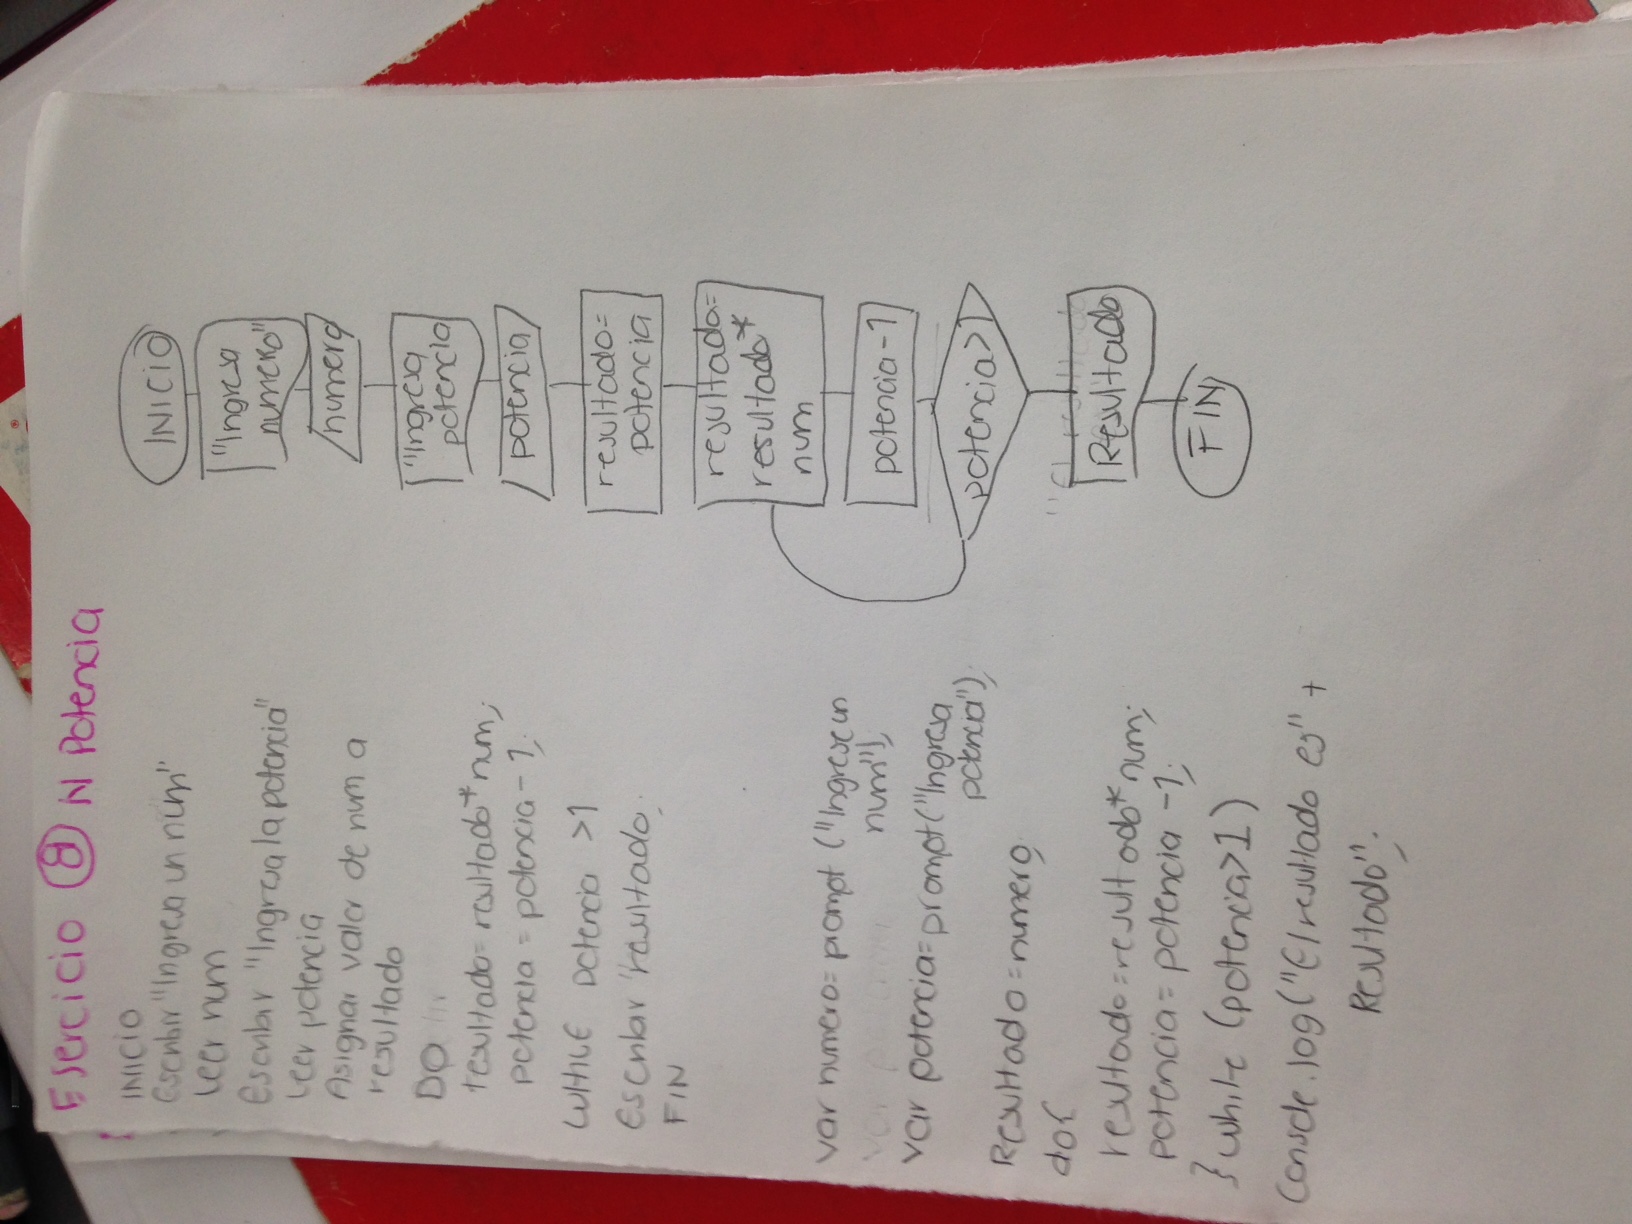 Esercicio 8 N Potencia
INICIO
Escribir "Ingresa un núm"
Leer num
Escribir "Ingresa la potencia"
Leer potencia
Asignar valor de num a
resultado
DO
resultado = resultado * num;
potencia = potencia - 1;
WHILE potencia > 1
Escribir "resultado.
FIN
var numero = prompt ("Ingrese un
num");
var potencia = prompt ("Ingresa
potencia");
Resultado = numero
do{
resultado = resultado * num;
potencia = potencia - 1;
} while (potencia > 1)
Console.log("El resultado es" +
Resultado");
INICIO
"Ingresa
numero"
numero
"Ingresa
potencia
potencia
resultado =
potencia
resultado =
resultado *
num
potencia - 1
potencia > 1
Resultado
FIN